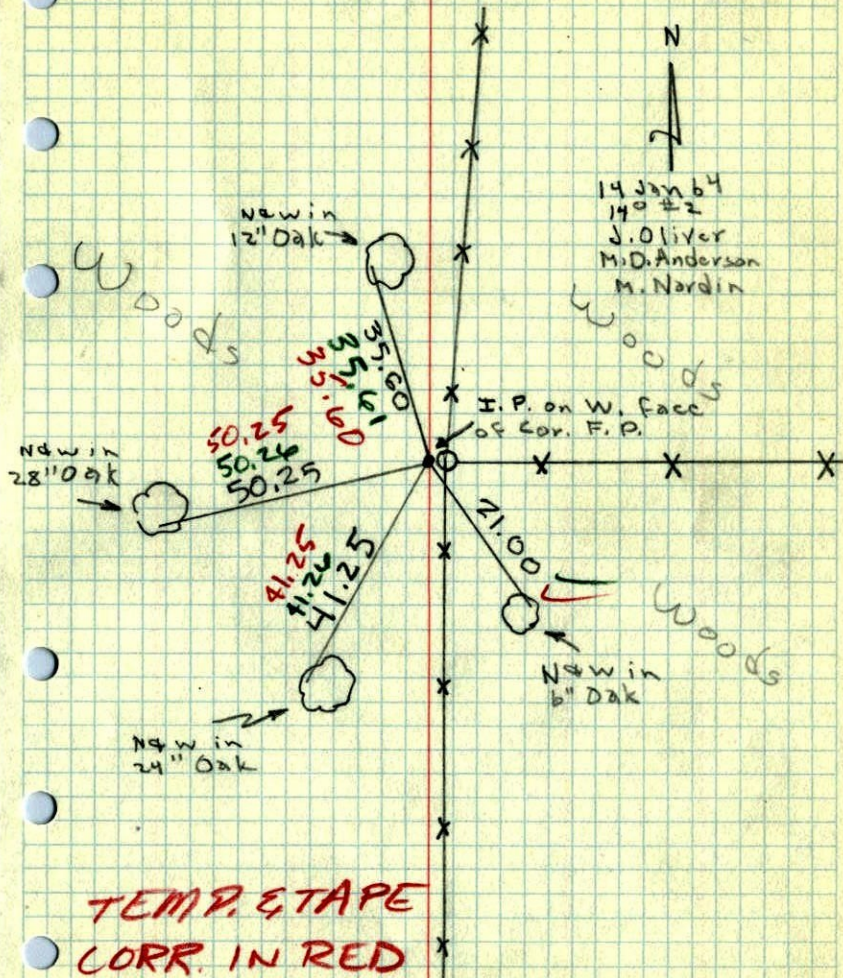 N
14 Jan 64
14° #2
J. Oliver
M.D. Anderson
M. Nardin
N&W in
12" Oak
Woods
Woods
35.60
35.61
35.60
I.P. on W. face
of Cor. F.P.
50.25
50.26
50.25
N&W in
28" Oak
21.00
41.25
41.26
41.25
Woods
N&W in
6" Oak
N&W in
24" Oak
TEMP. & TAPE
CORR. IN RED